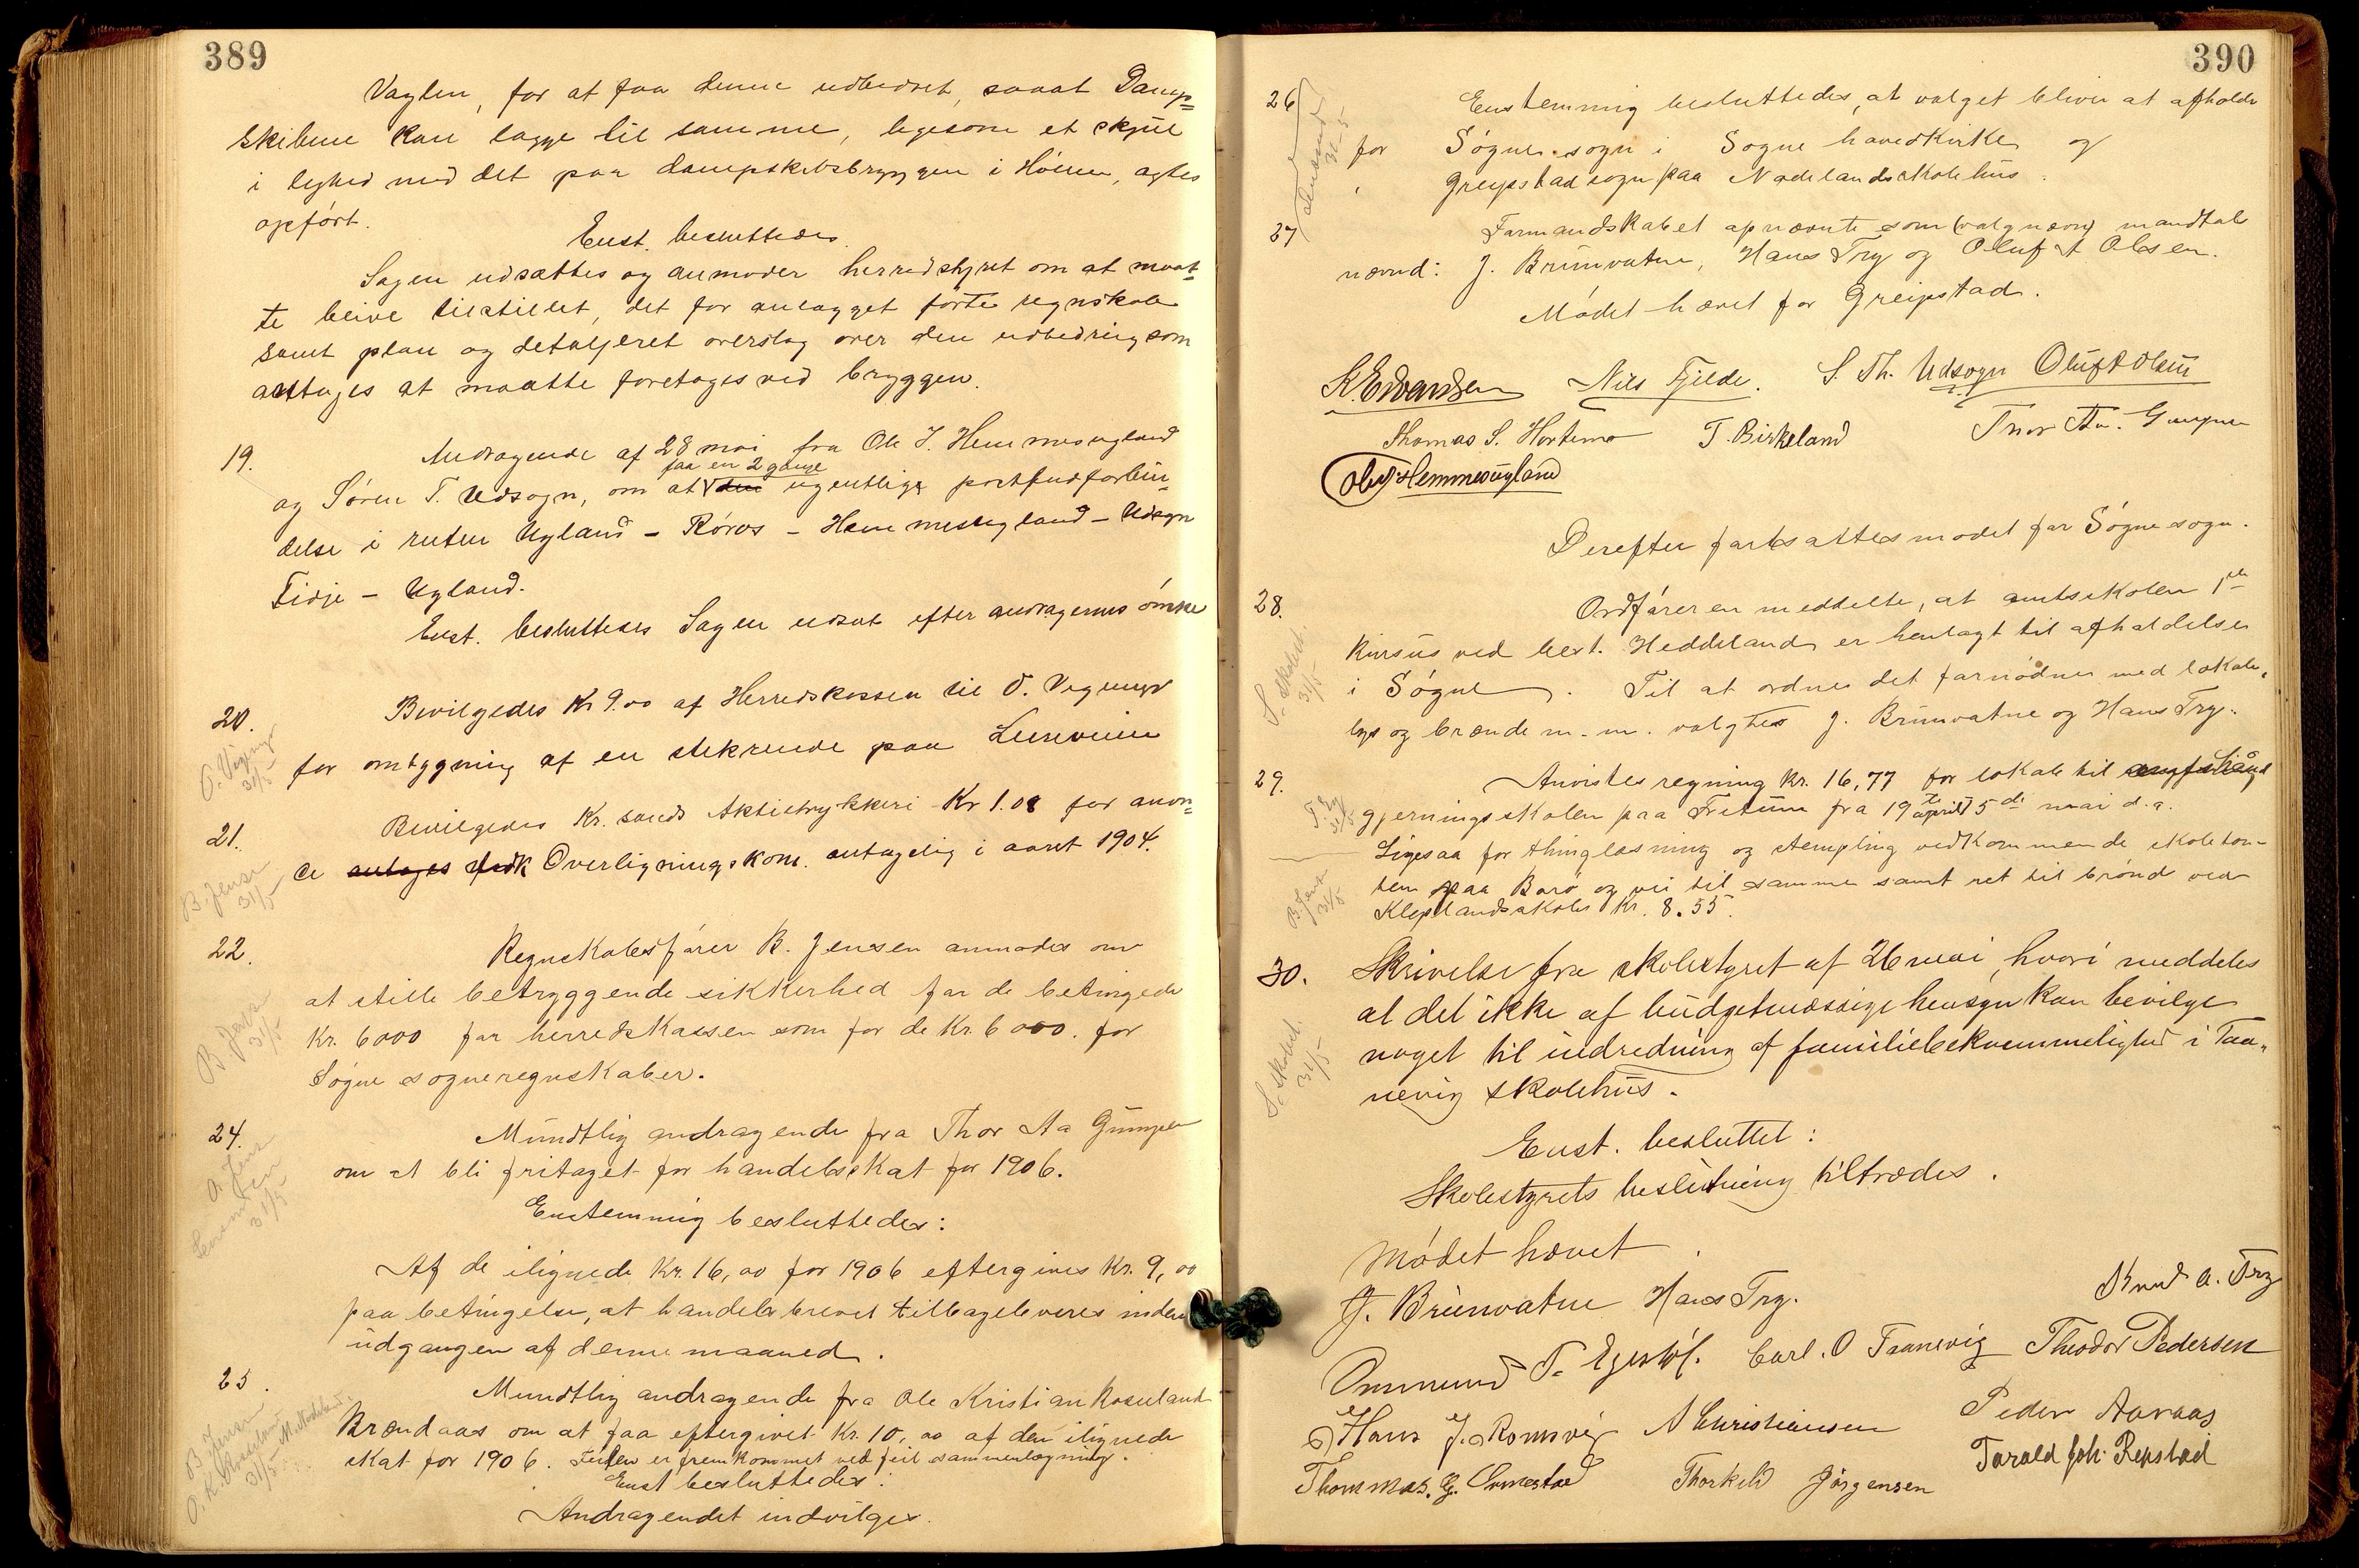 389
Vagten, for at faa denne udbedret, saaat Damp=
skibene kan lægge til samme, ligesom et skjul
i lighed med det paa dampskibsbryggen i Høllen, agtes
opført.
Enst. besluttedes
Sagen udsættes og anmoder herredstyret om at maat=
te blive tilstillet, det for anlægget førte regnskab
samt plan og detaljeret overslag over den udbedring som
antages at maatte foretages ved bryggen.
19.
Andragende af 28 mai fra Ole J. Hemmesugland
faa en 2 gange
og Søren T. Udsogn, om at den ugentlige postbudforbin=
delse i ruten Ugland – Røros – Hemmesugland – Udsogn
Tidje – Ugland.
Enst. besluttedes Sagen udsat efter andragernes ønske
20.
O. Vegunger
31/5
Bevilgedes Kr 9.00 af Herredskassen til O.
for ombygning af en stikrende paa
21.
B. Jensen
31/5
Bevilgedes Kr. sands Aktietrykkeri Kr 1.08 for
antages Overligningskom. antagelig i aaret 1904.
22.
B. Jens
31/5
Regnskabsfører B. Jensen anmodes om
at stille betryggende sikkerhed for de betingede
Kr. 6000 for herredskassen som for de Kr. 6000. for
Søgne sogneregnskaber.
24.
31/5
Mundtlig andragende fra Thor Aa Gumpen
om at bli fritaget for handelsskat for 1906.
Enstemmig besluttedes:
Af de ilignede Kr. 16,00 for 1906 eftergives Kr. 9,00
paa betingelse, at handelsbrevet tilbageleveres inden
udgangen af denne maaned.
25.
B. Jensen
31/5
Mundtlig andragende fra Ole Kristian Rosseland
Brændaas om at faa eftergivet Kr. 10,00 af den ilignede
skat for 1906. Feilen er fremkommet ved feil sammenlægning.
Enst besluttedes:
Andragendet indvilges.
390
26
31-5
Enstemmig besluttedes, at valget bliver at afholde
for Søgne sogn i Søgne hovedkirke og
Greipstad sogn paa Nodelandsskolehus.
27
Formandskabet opnævnte som (valgnævn) mandtals
nævnd: J. Brunvatne, Hans Try og Oluf A Olsen.
Mødet hævet for Greipstad.
K. Edvardsen Nils Fjelde. S. Th. Udsogn Oluf A Olsen
Thomas S. Hortemo T. Birkeland Thor Aa. Gumpen
Ole J. Hemmesugland
Derefter fortsattes mødet for Søgne sogn.
28.
S. skolest.
31/5
Ordføreren meddelte, at amtsskolen 1ste
Kursus ved best. Heddeland er henlagt til afholdelse
i Søgne. Til at ordne det fornødne med lokale,
lys og brænde m.m. valgtes J. Brunvatne og Hans Try.
29.
31/5
Anvistes regning Kr. 16,77 for lokale til haand
gjerningsskolen paa Fritum fra 19te april 5te mai d.a.
Ligesaa for thinglæsning og stempling vedkommende skoletom-
ten paa Borø og vei til samme samt ret til brønd ved
Kleplandsskole Kr. 8.55.
B. Jens
31/5
30.
S. skolest.
31/5
Skrivelse fra skolestyret af 26 mai, hvori meddeles
at det ikke af budgetmæssige hensyn kan bevilge
noget til indredning af familiebekvemmelighed i Taa-
nevig skolehus.
Enst. besluttet:
Skolestyrets beslutning tiltrædes.
Mødet hævet.
J. Brunvatne Hans Try. Knud A. Try
Ommund T. Carl. O Tranevig Theodor Pedersen
Hans J. Romsvig A Christiansen Peder Aaraas
Thommas. G. Thorkild Jørgensen Tarald Joh. Repstad